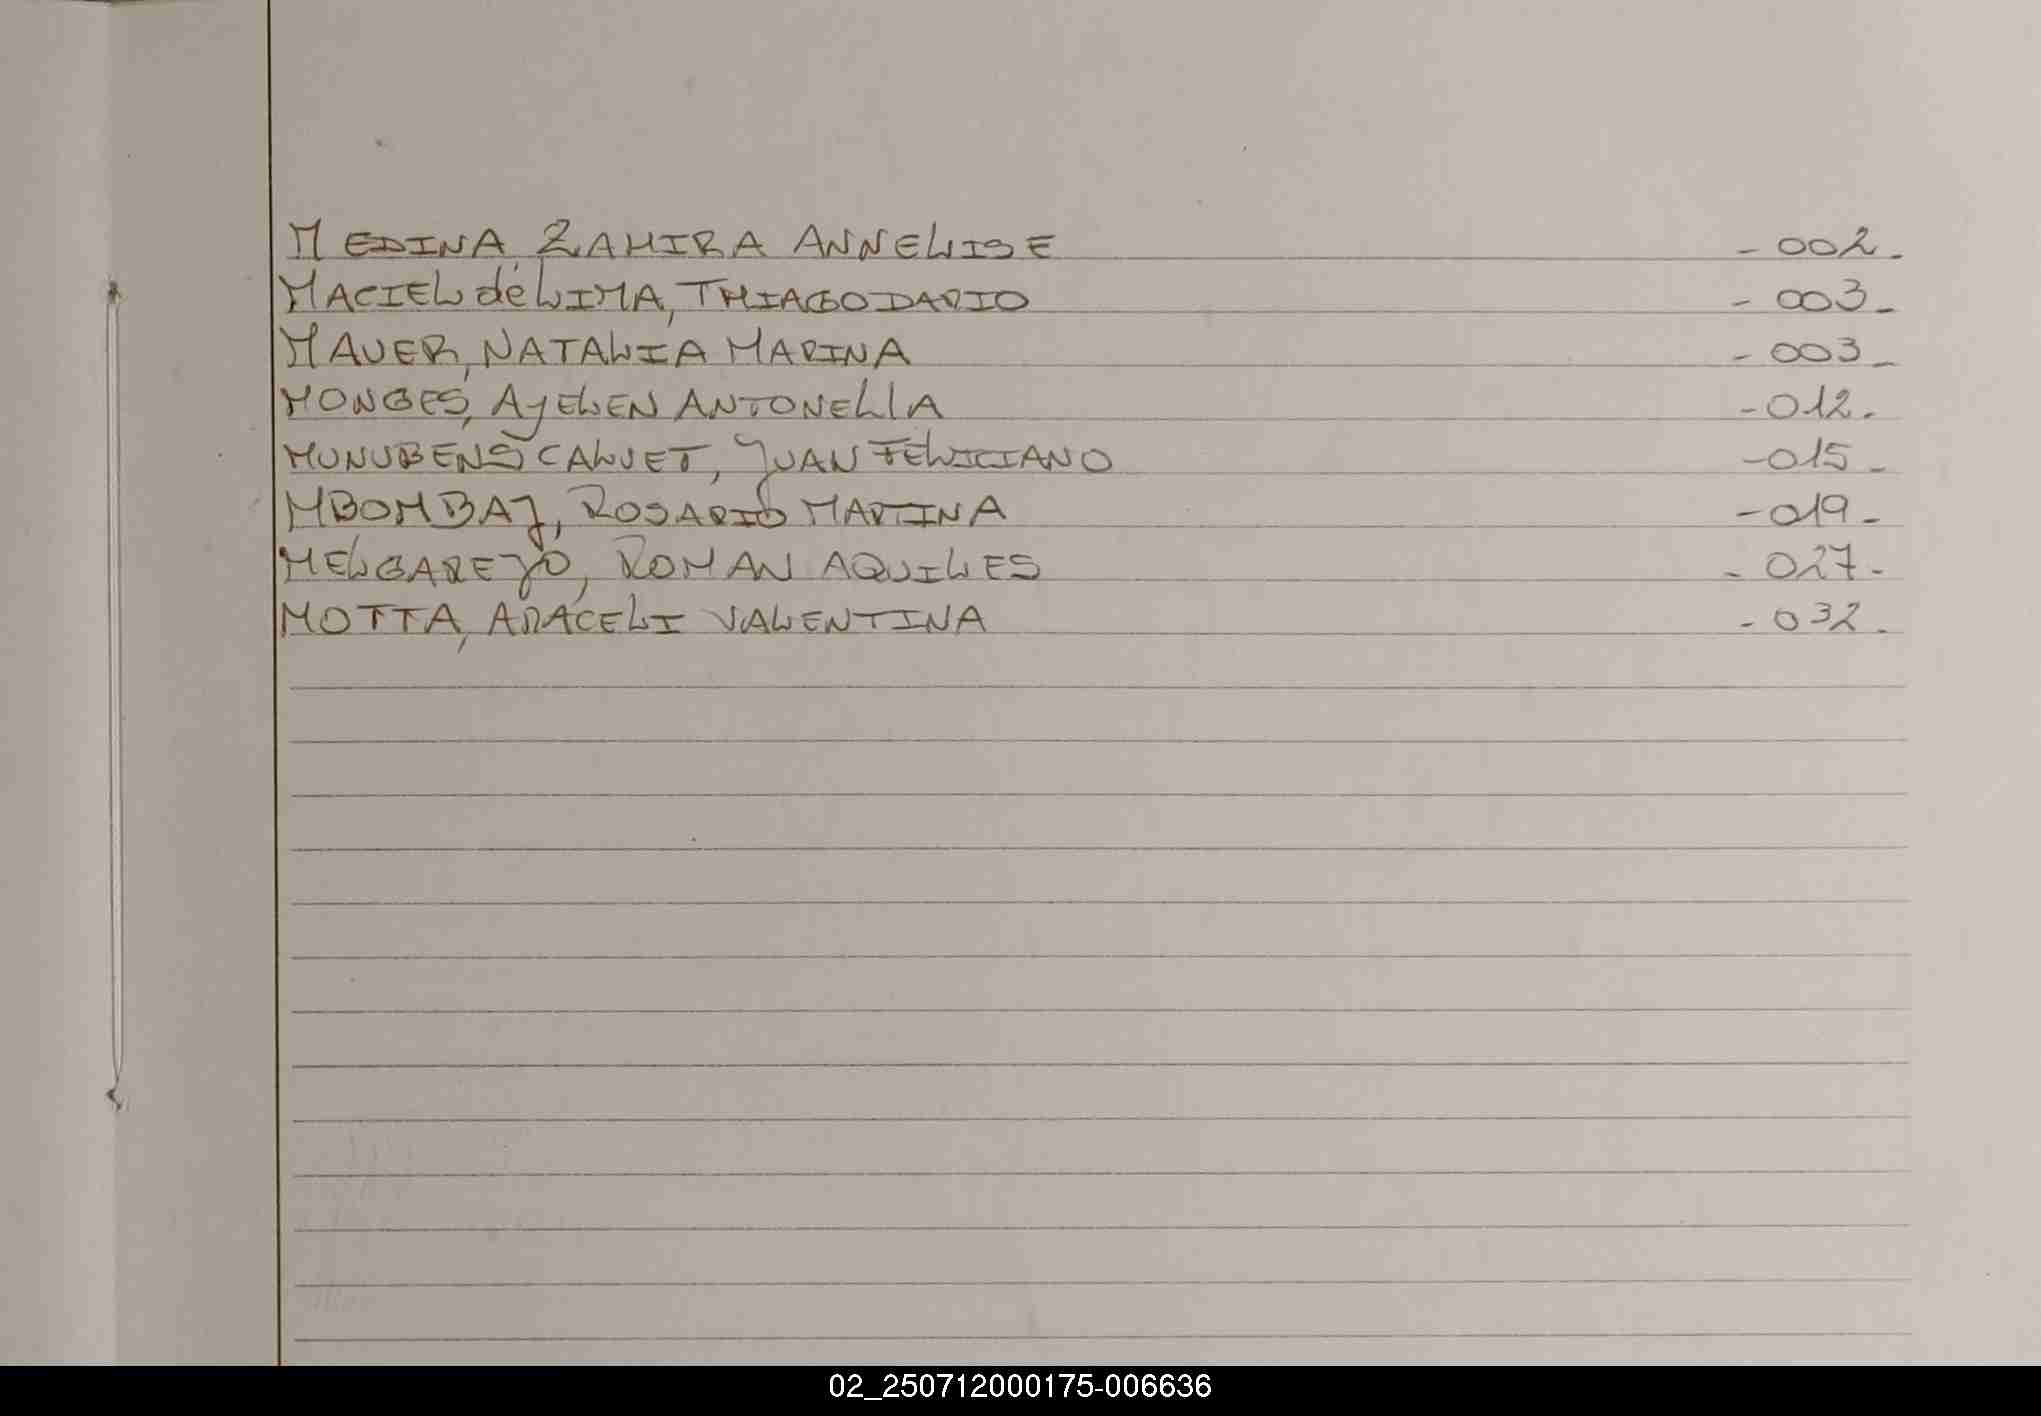 MEDINA, ZAHIRA ANNELISE - 002 -
MACIEL de LIMA, THIAGO DARIO - 003 -
MAUER, NATALIA MARINA - 003 -
MONGES, AYELEN ANTONELLA - 012 -
MUNUBENS CALVET, JUAN FELICIANO - 015 -
MBOMBAJ, ROSARIO MARTINA - 019 -
MELGAREJO, ROMAN AQUILES - 027 -
MOTTA, ARACELI VALENTINA - 032 -
02_250712000175-006636